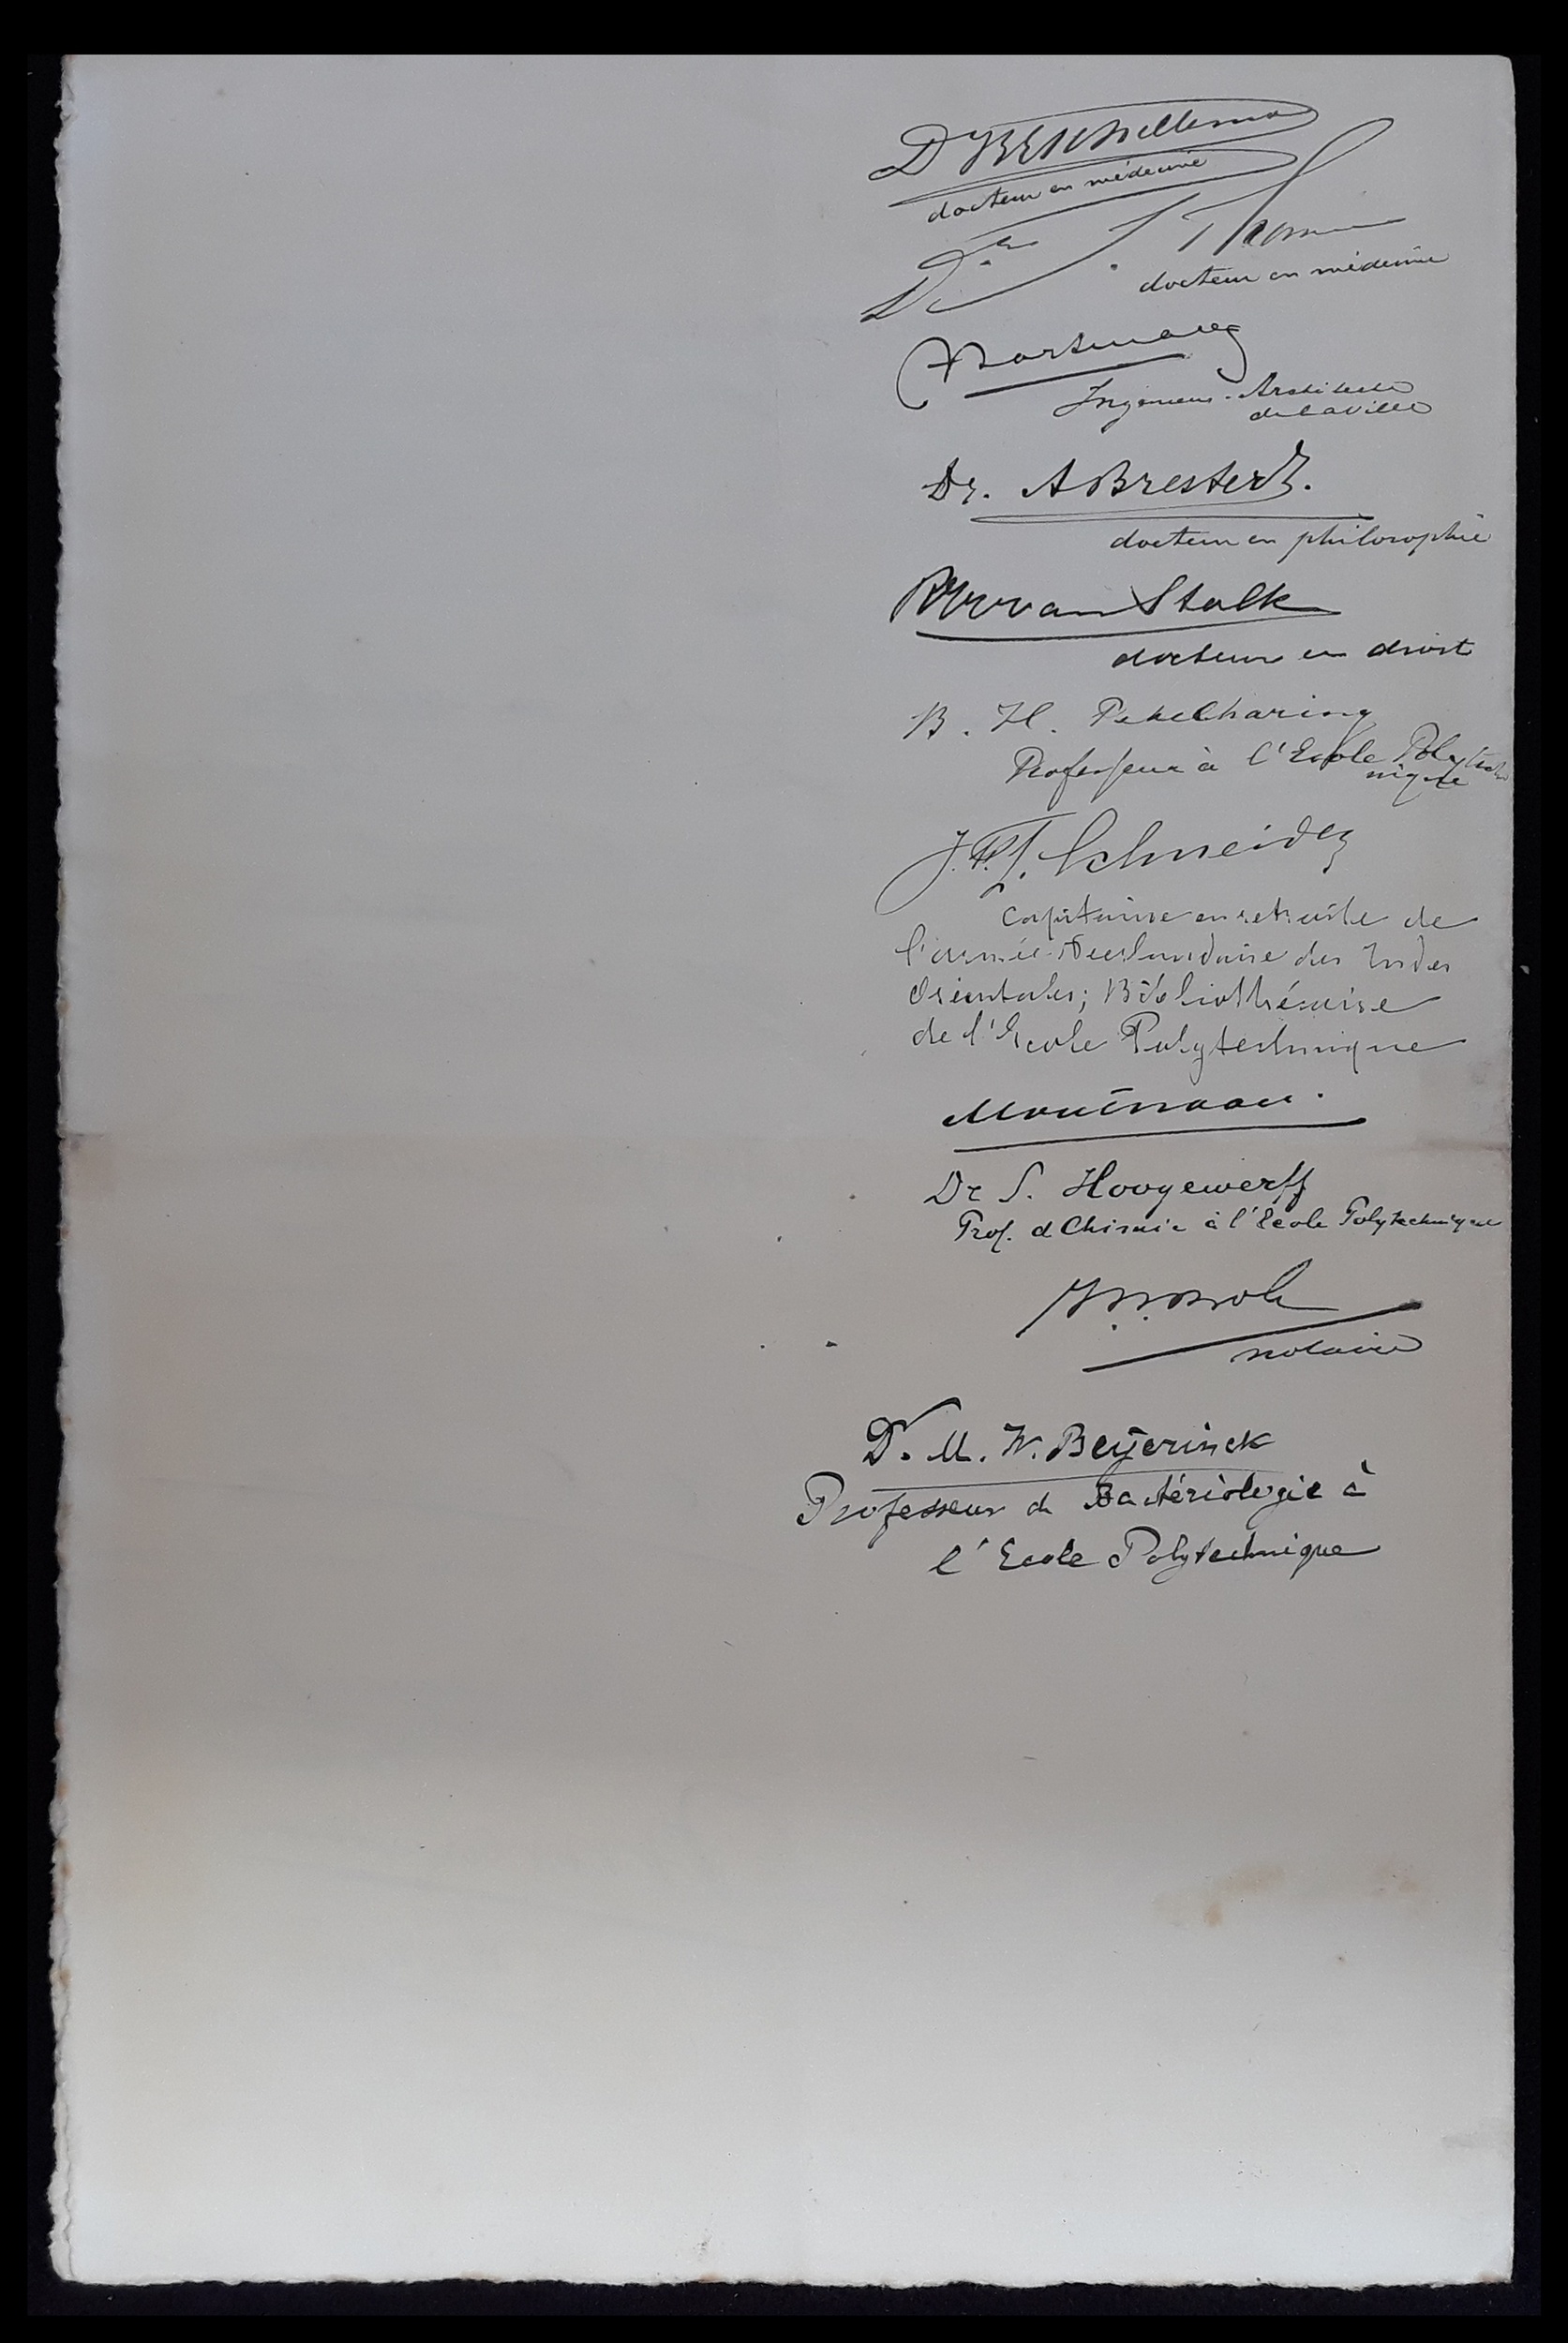 docteur en médecine
Dr J. Th
docteur en médecine
Ingénieur-Architecte
de la ville
Dr. A Brester Jz.
docteur en philosophie
van Stolk
docteur en droit
B. H. Pekelharing
Professeur à l'Ecole Polytech
nique
J. F. J. Schneider
Capitaine en retraite de
l'armée Neerlandaise des Indes
Orientales; Bibliothécaire
de l'Ecole Polytechnique
Dr S. Hoogewerff
Prof. d Chimie à l'École Polytechnique
notaire
Dr. M. W. Beijerinck
Professeur de Bactériologie à
l'Ecole Polytechnique